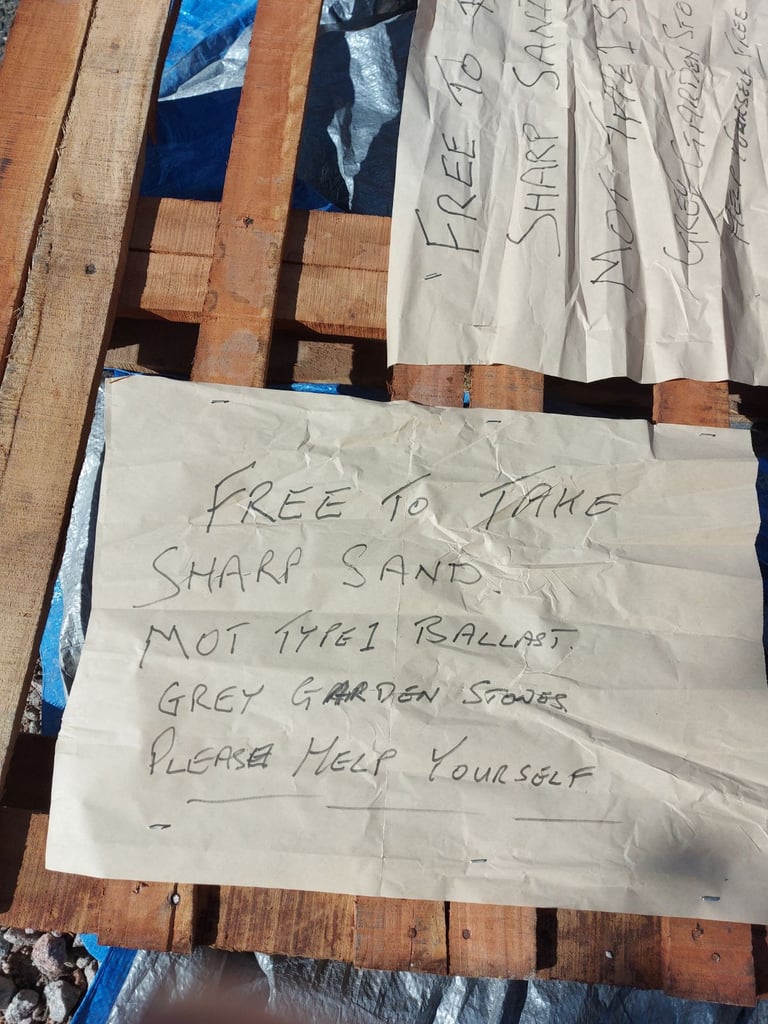 FREE TO
SHARP SAND
MOT TYPE 1
GREY GARDEN STO
HELP YOURSELF FREE
FREE TO TAKE
SHARP SAND.
MOT TYPE 1 BALLAST.
GREY GARDEN STONES.
PLEASE HELP YOURSELF